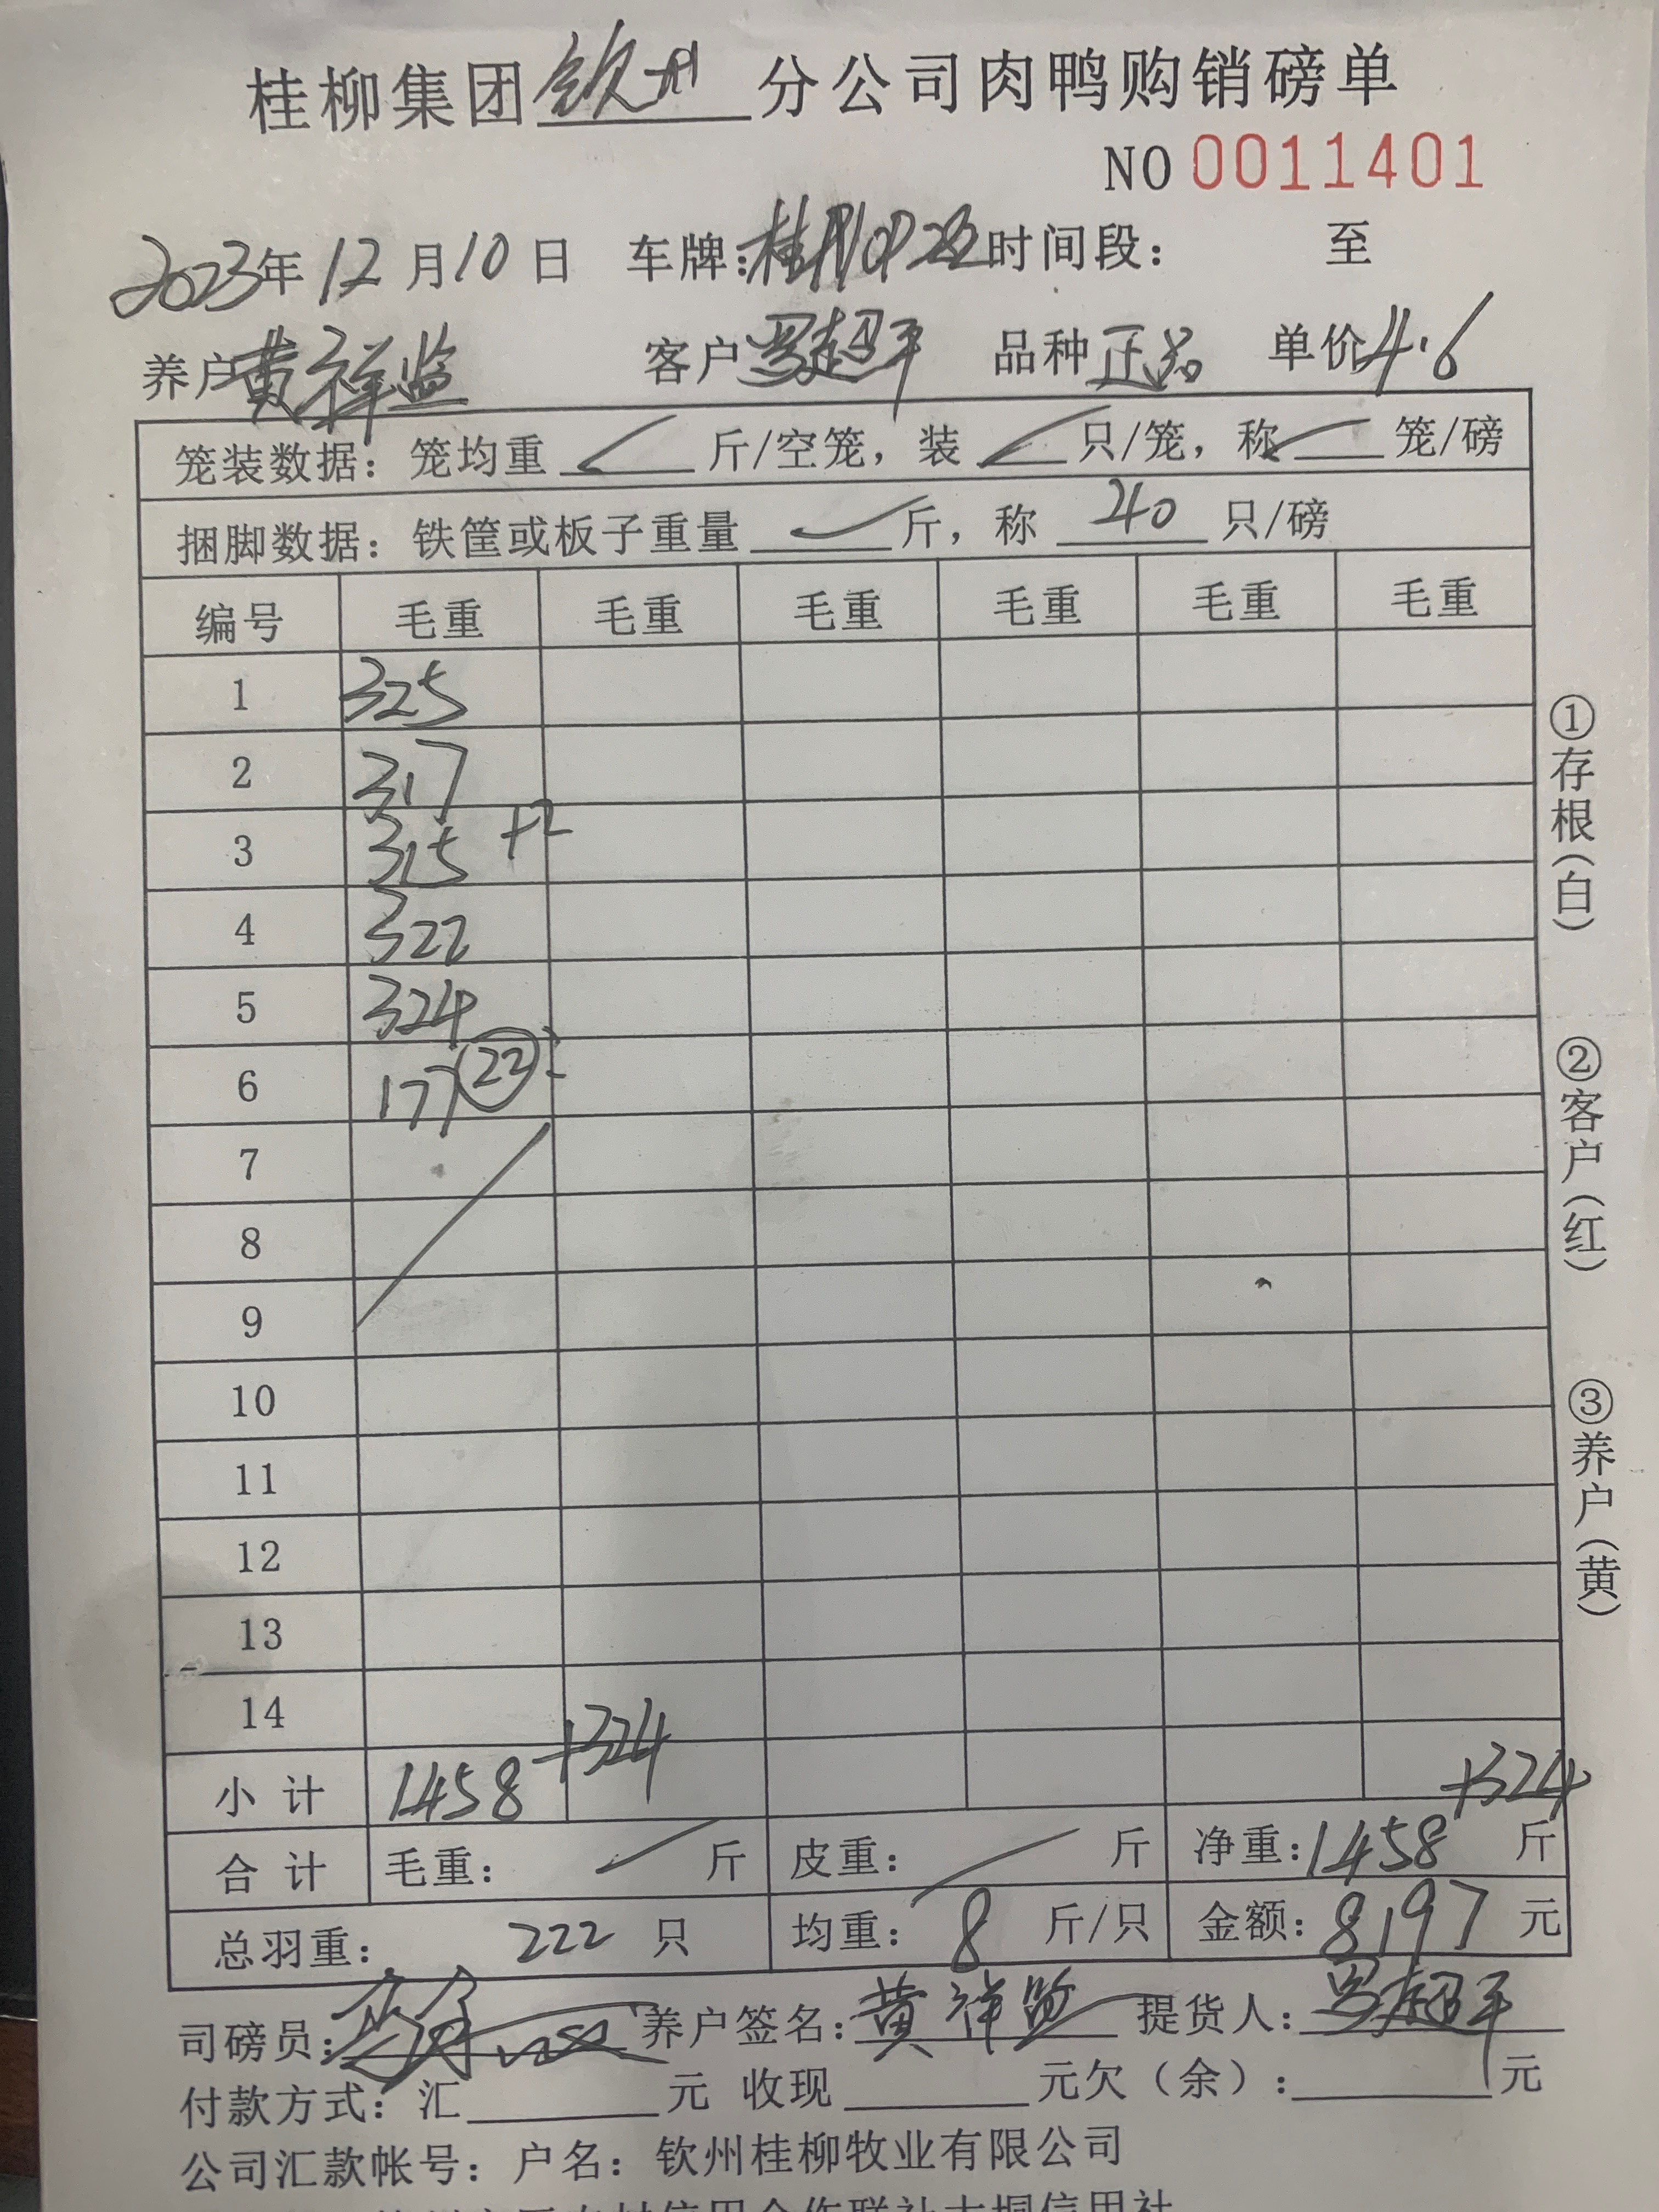 桂柳集团钦州分公司肉鸭购销磅单
NO 0011401
2023年12月10日 车牌: 时间段: 至
养户黄祥监 客户罗超平 品种正品 单价4.6
笼装数据: 笼均重 斤/空笼, 装 只/笼, 称 笼/磅
捆脚数据: 铁筐或板子重量 斤, 称 40 只/磅
编号 毛重 毛重 毛重 毛重 毛重 毛重
1 325
2 317
3 315 +2
4 322
5 324
6 177 22
7
8
9
10
11
12
13
14
小计 1458 +324 +324
合计 毛重: 斤 皮重: 斤 净重:1458 斤
总羽重: 222 只 均重: 8 斤/只 金额: 8197 元
司磅员: 养户签名:黄祥监 提货人:罗超平
付款方式: 汇 元 收现 元欠(余): 元
公司汇款帐号: 户名: 钦州桂柳牧业有限公司
①存根(白)
②客户(红)
③养户(黄)